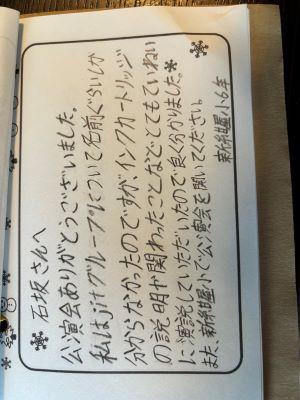 石坂さんへ
公演会ありがとうございました。
私はjitグループについて名前ぐらいしか
分からなかったのですが、インクカートリッジ
の説明や関わったことなどとてもていねい
に演説していただいたので良く分かりました。
また、新紺屋小で公演会を開いてください。
新紺屋小6年